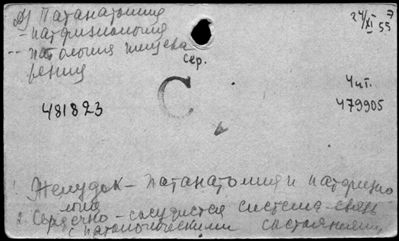 а) Патанатомия 24/XI 7 55
- патфизиология
-- патология пищева
рения
сер.
С
Чит.
481823 479905
1. Желудок - патанатомия и патфизио
логия
2. Сердечно - сосудистая система - связь
с патологическими состояниями